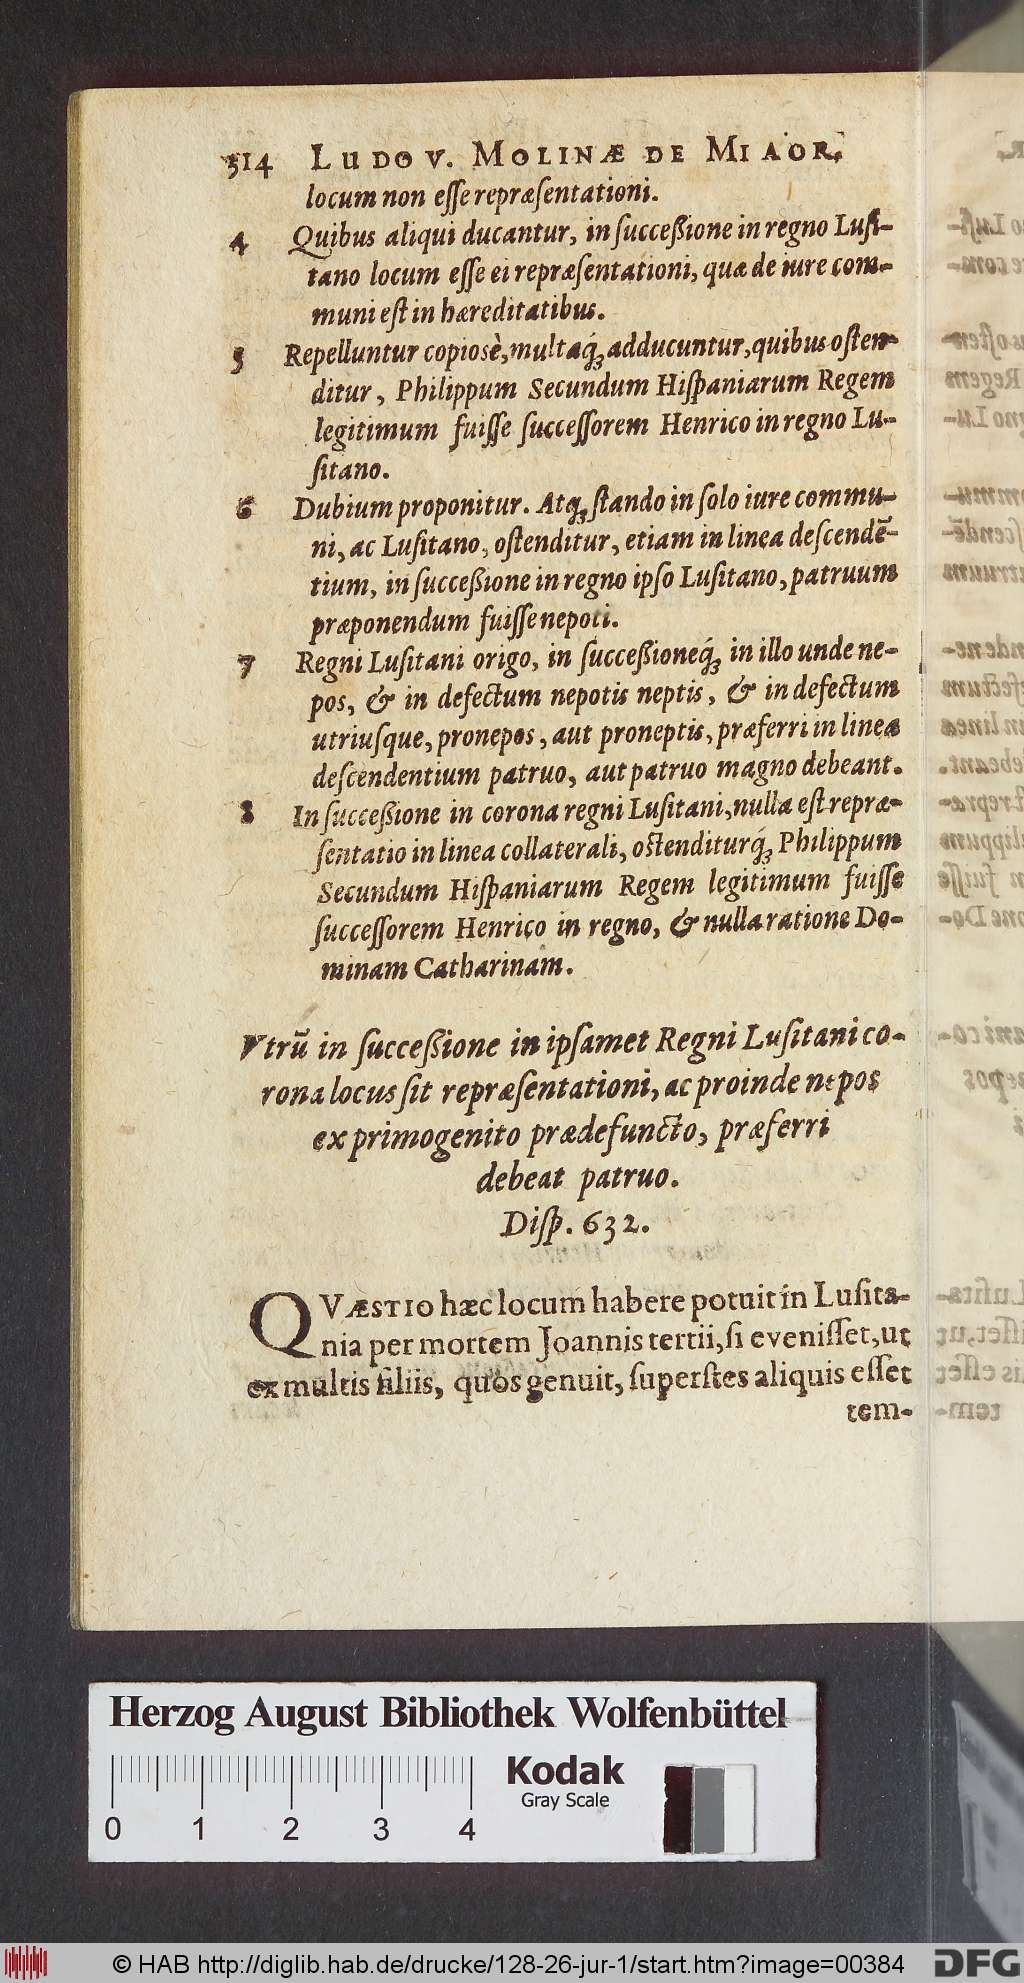 314 LUDOV. MOLINÆ DE MI AOR.
locum non eſſe repræſentationi.
4 Quibus aliqui ducantur, in ſucceßione in regno Luſi-
tano locum eſſe ei repræſentationi, quæ de iure com-
muni eſt in hæreditatibus.
5 Repelluntur copiosè, multaq́; adducuntur, quibus oſten-
ditur, Philippum Secundum Hiſpaniarum Regem
legitimum fuiſſe ſucceſſorem Henrico in regno Lu-
ſitano.
6 Dubium proponitur. Atq; ſtando in ſolo iure commu-
ni, ac Luſitano, oſtenditur, etiam in linea deſcendē-
tium, in ſucceßione in regno ipſo Luſitano, patruum
præponendum fuiſſe nepoti.
7 Regni Luſitani origo, in ſucceßioneq́; in illo unde ne-
pos, & in defectum nepotis neptis, & in defectum
utriuſque, pronepos, aut proneptis, præferri in linea
deſcendentium patruo, aut patruo magno debeant.
8 In ſucceßione in corona regni Luſitani, nulla eſt repræ-
ſentatio in linea collaterali, oſtenditurq́; Philippum
Secundum Hiſpaniarum Regem legitimum fuiſſe
ſucceſſorem Henrico in regno, & nulla ratione Do-
minam Catharinam.
Vtrū in ſucceßione in ipſamet Regni Luſitani co-
rona locus ſit repræſentationi, ac proinde nepos
ex primogenito prædefuncto, præferri
debeat patruo.
Diſp. 632.
QVÆSTIO hæc locum habere potuit in Luſita-
nia per mortem Joannis tertii, ſi eveniſſet, ut
ex multis filiis, quos genuit, ſuperſtes aliquis eſſet
tem-
Herzog August Bibliothek Wolfenbüttel
Kodak
Gray Scale
0 1 2 3 4
© HAB http://diglib.hab.de/drucke/128-26-jur-1/start.htm?image=00384
DFG